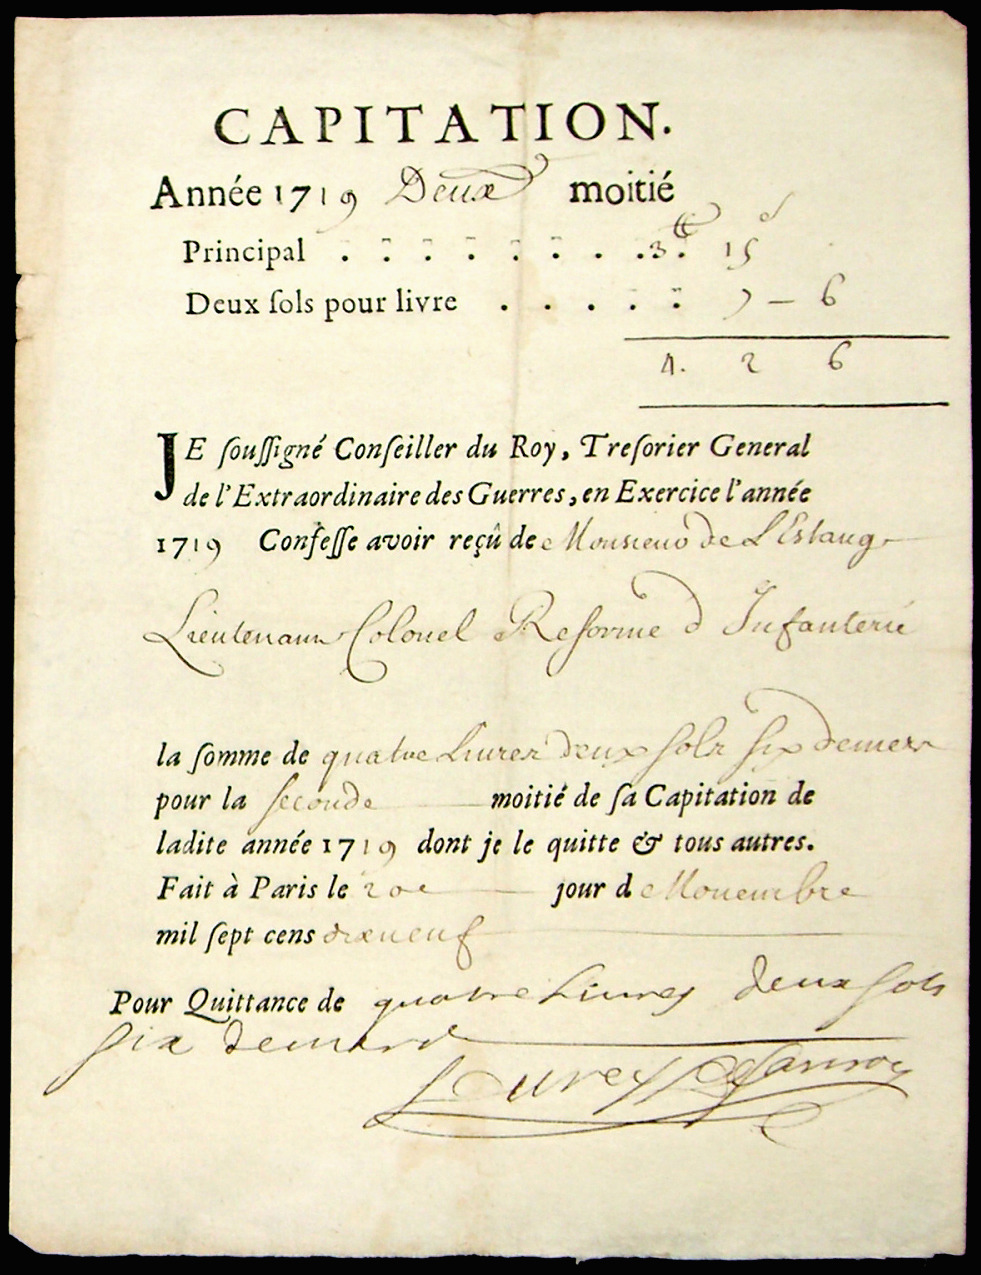 CAPITATION.
Année 1719 Deuxe moitié
Principal . . . . . . . . 3.ᵗᵗ 15 ˢ
Deux ſols pour livre . . . . . 7 — 6
4. 2 6
JE ſouſſigné Conſeiller du Roy, Treſorier General
de l'Extraordinaire des Guerres, en Exercice l'année
1719 Confeſſe avoir reçû de Monsieur de L'Estang
Lieutenant Colonel Reformé d'Infanterie
la ſomme de quatre Livres deux ſols ſix deniers
pour la ſeconde moitié de ſa Capitation de
ladite année 1719 dont je le quitte & tous autres.
Fait à Paris le 20e jour de Nouembre
mil ſept cens dixneuf
Pour Quittance de quatre Livres deux ſols
ſix deniers